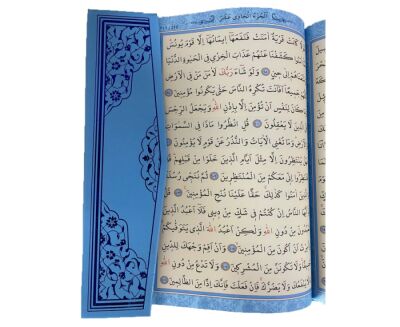 الجزء الحادي عشر
كَانَتْ قَرْيَةٌ اٰمَنَتْ فَنَفَعَهَا اِيمَانُهَا اِلَّا قَوْمَ يُونُسَ
كَشَفْنَا عَنْهُمْ عَذَابَ الْخِزْيِ فِي الْحَيٰوةِ الدُّنْيَا
اِلٰى حِينٍ وَلَوْ شَاءَ رَبُّكَ لَاٰمَنَ مَنْ فِي الْاَرْضِ
جَمِيعًا اَفَاَنْتَ تُكْرِهُ النَّاسَ حَتّٰى يَكُونُوا مُؤْمِنِينَ
كَانَ لِنَفْسٍ اَنْ تُؤْمِنَ اِلَّا بِاِذْنِ اللّٰهِ وَيَجْعَلُ الرِّجْسَ
الَّذِينَ لَا يَعْقِلُونَ قُلِ انْظُرُوا مَاذَا فِي السَّمٰوَاتِ
وَمَا تُغْنِي الْاٰيَاتُ وَالنُّذُرُ عَنْ قَوْمٍ لَا يُؤْمِنُونَ
يَنْتَظِرُونَ اِلَّا مِثْلَ اَيَّامِ الَّذِينَ خَلَوْا مِنْ قَبْلِهِمْ قُلْ
اِنِّي مَعَكُمْ مِنَ الْمُنْتَظِرِينَ ثُمَّ نُنَجِّي رُسُلَنَا
اٰمَنُوا كَذٰلِكَ حَقًّا عَلَيْنَا نُنْجِ الْمُؤْمِنِينَ
النَّاسُ اِنْ كُنْتُمْ فِي شَكٍّ مِنْ دِينِي فَلَا اَعْبُدُ
مِنْ دُونِ اللّٰهِ وَلٰكِنْ اَعْبُدُ اللّٰهَ الَّذِي يَتَوَفّٰيكُمْ
اَنْ اَكُونَ مِنَ الْمُؤْمِنِينَ وَاَنْ اَقِمْ وَجْهَكَ لِلدِّينِ
وَلَا تَكُونَنَّ مِنَ الْمُشْرِكِينَ وَلَا تَدْعُ مِنْ دُونِ اللّٰهِ
يَنْفَعُكَ وَلَا يَضُرُّكَ فَاِنْ فَعَلْتَ فَاِنَّكَ اِذًا مِنَ الظَّالِمِينَ